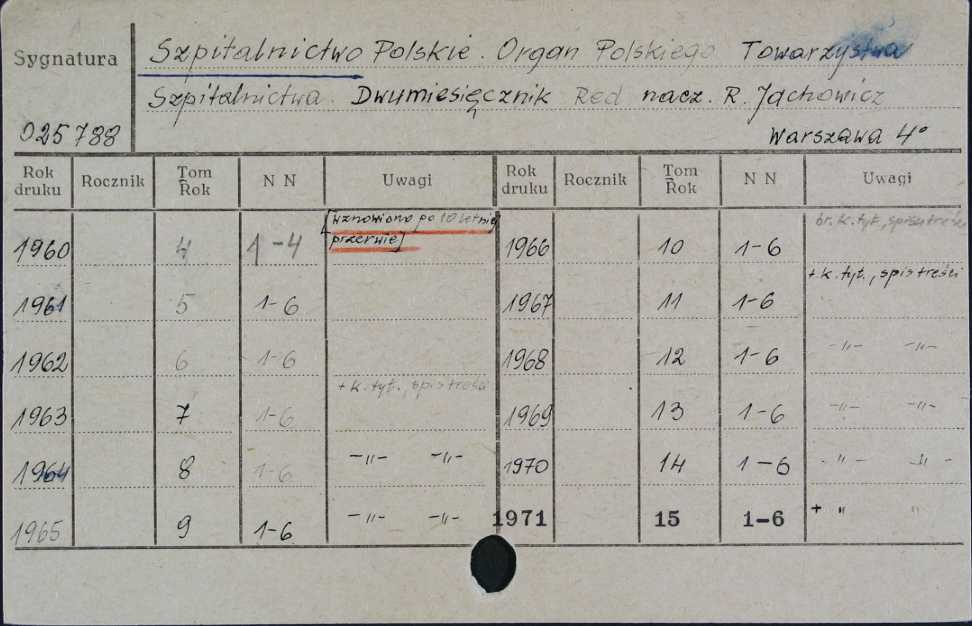 Sygnatura
Szpitalnictwo Polskie. Organ Polskiego Towarzystwa
Szpitalnictwa. Dwumiesięcznik Red nacz. R. Jachowicz
025788 Warszawa 4°
Rok druku Rocznik Tom Rok N N Uwagi Rok druku Rocznik Tom Rok N N Uwagi
1960 4 1-4 [wznowiono po 10 letniej przerwie] 1966 10 1-6 br. k. tyt., spisu treści
1961 5 1-6 1967 11 1-6 + k. tyt., spis treści
1962 6 1-6 1968 12 1-6 -"- -"-
1963 7 1-6 + k. tyt., spis treści 1969 13 1-6 -"- -"-
1964 8 1-6 -"- -"- 1970 14 1-6 -"- -"-
1965 9 1-6 -"- -"- 1971 15 1-6 + " "